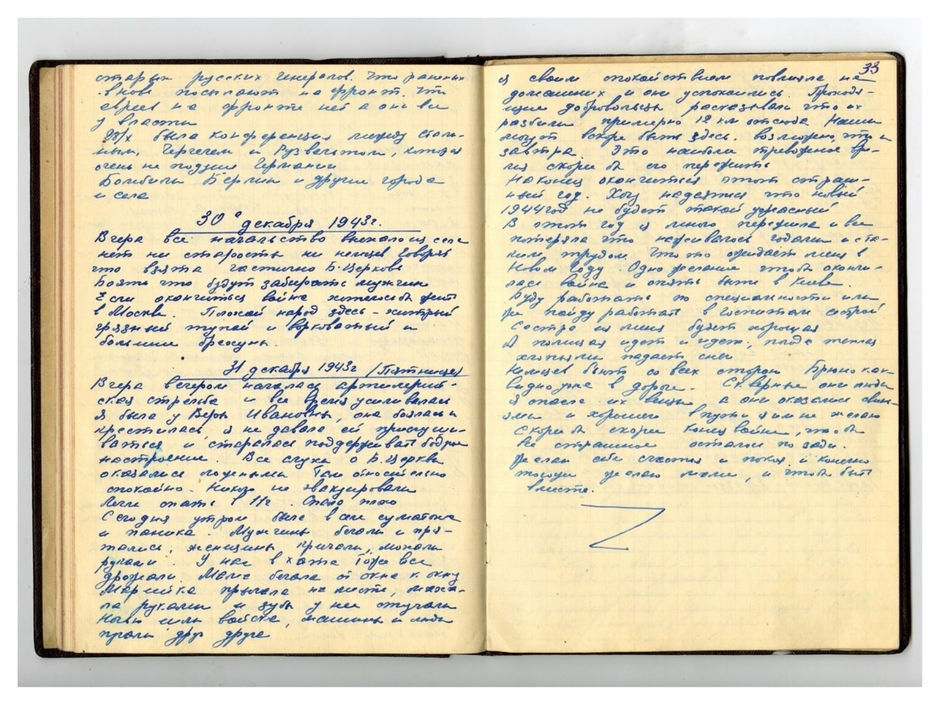 старых русских генералов. Что раненых
вновь посылают на фронт. Что
евреев на фронте нет а они все
у власти
была конференция между Стали-
ным, Черчелем и Рузвельтом, которая
очень не по душе Германии
Бомбили Берлин и другие города
и села
30 декабря 1943 г.
Вчера все начальство выехало из села
нет ни старосты ни немцев Говорят
что взята частично Б. Церковь
Боятся что будут забирать мужчин
Если окончиться война хотелось бы жить
в Москве. Плохой народ здесь - хитрый
грязный тупой и ворковатый и
большие брехуны.
31 декабря 1943 г (Пятница)
Вчера вечером началась артилерий-
ская стрельба и все время усиливалась
Я была у Веры Ивановны, она боялась и
крестилась, я не давала ей прислуши-
ваться, и старалась поддерживать бодрое
настроение. Все слухи о Б. Церкви
оказались ложными Там относительно
спокойно. Никого не эвакуировали
Легли спать в Спала плохо
Сегодня утром была в селе суматоха
и паника. Мужчины бегали и пря-
тались, женщины кричали, махали
руками. У нас в хате тоже все
дрожали. бегала от окна к окну
Марийка прыгала на месте, маха-
ла руками и зубы у нее стучали
шли войска, машины и люди
друг друга
33
я своим спокойствием повлияла на
домашних и они успокоились. Приходя-
щие добровольцы рассказывали что их
разбили примерно 12 км отсюда Наши
могут вскоре быть здесь. возможно, что и
завтра. Это наиболее тревожное вре-
мя скорей бы его пережить
Наконец окончиться этот страш-
ный год. Хочу надеяться что новый
1944 год не будет такой ужасный
В этот год я много пережила и все
потеряла что наживалось годами и ста-
ким трудом. Что то ожидает меня в
Новом Году. Одно желание чтобы окончи-
лась война и опять быть в Киеве.
Буду работать по специальности или
же пойду работать в госпиталь сестрой
Сестра из меня будет хорошая
А полицая идет и идет,
хлопьями падает снег
Немцев бьют со всех сторон
видно уже в дороге. Скверные они люди
Я спасла их вещи а они оказались свинь-
ями и хорошего в пути я им не желаю
Скорей бы скорей конец войне, чтобы
все страшное осталось позади.
Желаю себе счастья и покоя и конечно
того же желаю маме, и чтобы быть
вместе.